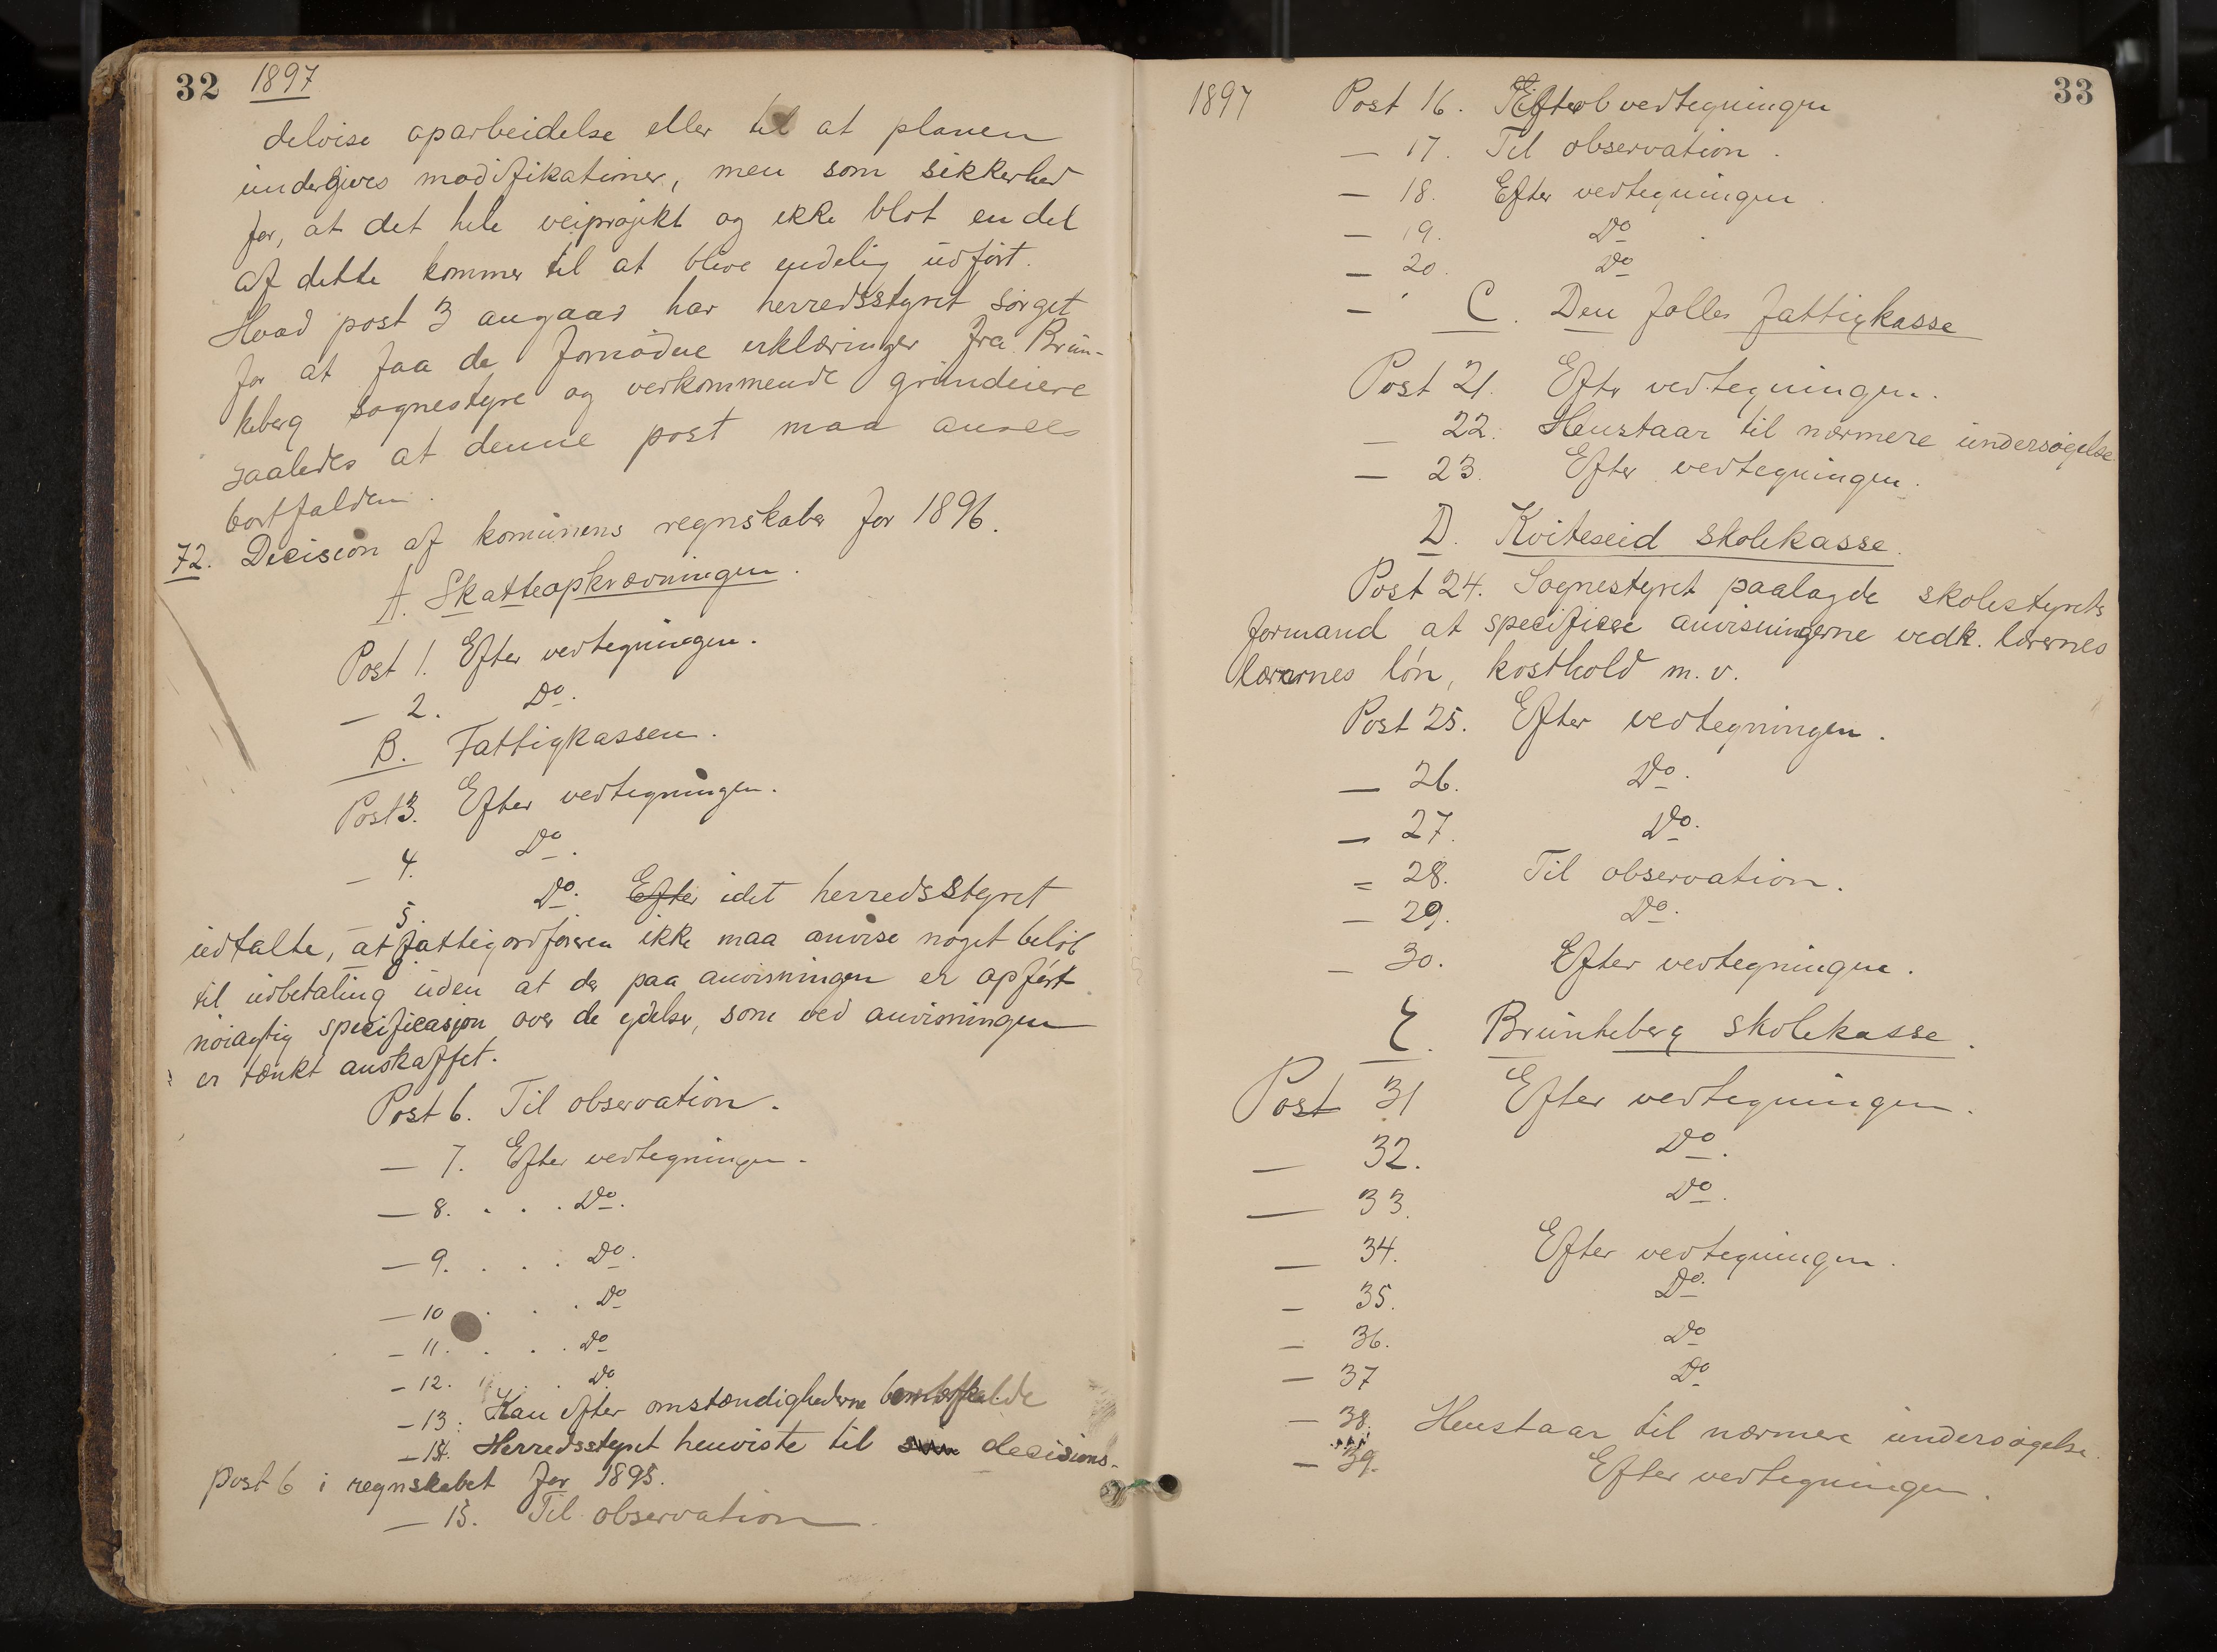 32 1897
delvise oparbeidelse eller til at planen
undergives modifikationer, men som sikkerhed
for, at det hele veiprojekt og ikke blot en del
af dette kommer til at blive endelig udført.
Hvad post 3 angaar har herredsstyret sørget
for at faa de fornødne erklæringer fra Brun-
keberg sognestyre og vedkommende grundeiere
saaledes at denne post maa ansees
bortfalden.
72. Decision af komunens regnskaber for 1896.
A. Skatteopkrævningen.
Post 1. Efter vedtegningen.
— 2. Do.
B. Fattigkassen.
Post 3. Efter vedtegningen.
— 4. Do.
— 5. Do. Efter idet herredsstyret
udtalte, at fattigordføreren ikke maa anvise noget beløb
til udbetaling uden at der paa anvisningen er opført
nøiagtig specificasjon over de ydelser, som ved anvisningen
er tænkt anskaffet.
Post 6. Til observation.
— 7. Efter vedtegningen.
— 8. . . . Do.
— 9. . . . Do.
— 10 . . . Do
— 11. . . . Do
— 12. . . Do
— 13. Kan efter omstændighederne bortfalde
— 14. Herredsstyret henviste til decisions-
post 6 i regnskabet for 1895.
— 15. Til observation.
1897 33
Post 16. Efter vedtegningen
— 17. Til observation.
— 18. Efter vedtegningen.
— 19. Do
— 20. Do
— C. Den fælles fattigkasse
Post 21. Efter vedtegningen.
— 22. Henstaar til nærmere undersøgelse
— 23. Efter vedtegningen.
D. Kviteseid skolekasse.
Post 24. Sognestyret paalagde skolestyrets
formand at specificere anvisningerne vedk. lærernes
lærernes løn, kosthold m. v.
Post 25. Efter vedtegningen.
— 26. Do.
— 27. Do.
— 28. Til observation.
— 29. Do.
— 30. Efter vedtegningen.
E. Brunkeberg skolekasse.
Post 31 Efter vedtegningen.
— 32. Do.
— 33. Do.
— 34. Efter vedtegningen.
— 35. Do.
— 36. Do
— 37 Do
— 38. Henstaar til nærmere undersøgelse.
— 39. Efter vedtegningen.